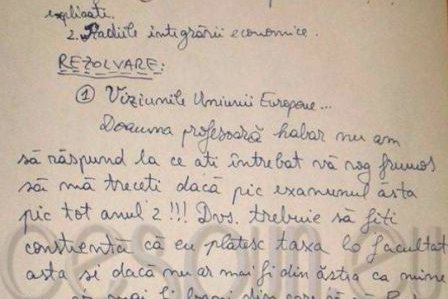 explicati.
2. Stadiile integrării economice.
REZOLVARE:
① Viziunile Uniunii Europene...
Doamna profesoară habar nu am
să răspund la ce ati întrebat vă rog frumos
să mă treceti dacă pic examenul ăsta
pic tot anul 2!!! Dvs. trebuie să fiti
constientă că eu plătesc taxa la facultat
asta si dacă nu ar mai fi din ăstia ca mine